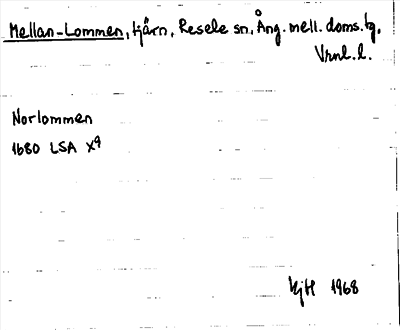 Mellan-Lommen, tjärn, Resele sn, Ång. mell. doms. tg,
Vrnl. l.
Norlommen
1680 LSA X9
KjH 1968